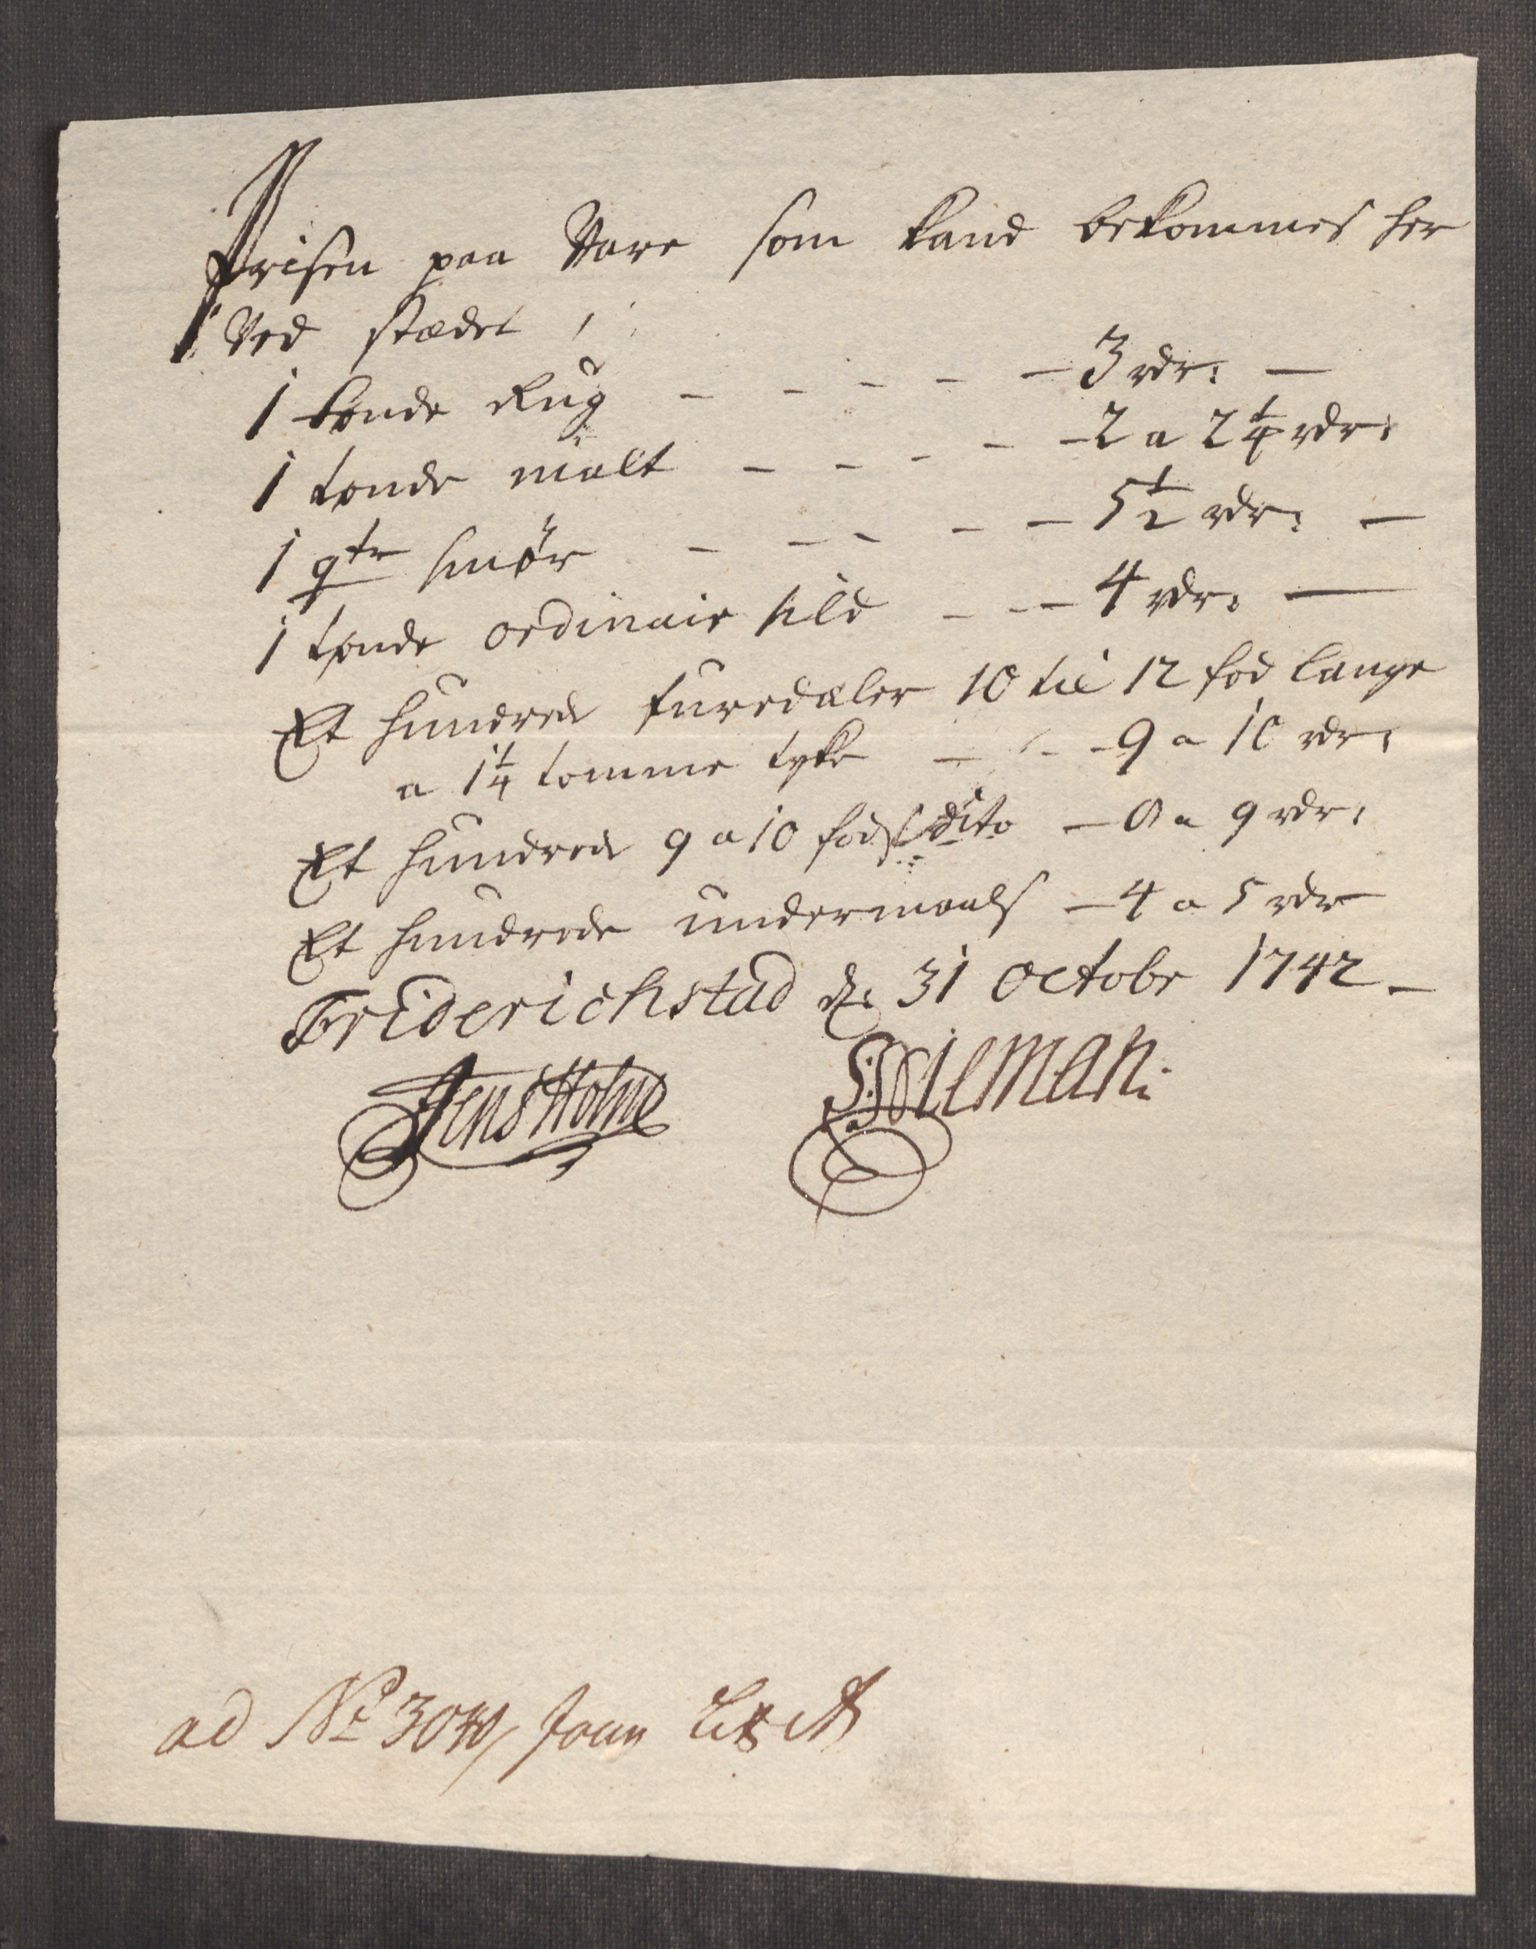 Prisen paa Vare som kand bekommes her
Ved stædet /
1 tønde Rug - - - - - 3 rdr: -
1 tønde malt - - - - - 2 a 2 1/4 rdr:
1 qtr smør - - - - - 5 1/2 rdr: -
1 tønde ordinair sild - - - 4 rdr: -
Et hundrede furedæler 10 til 12 fod lange
a 1 1/4 tomme tyke - - - 9 a 10 rdr:
Et hundrede 9 a 10 fods dito - 8 a 9 rdr:
Et hundrede undermaals - 4 a 5 rdr
Friderichstad d: 31 octobr 1742 -
Jens Holme S: Wilman:
ad No 30